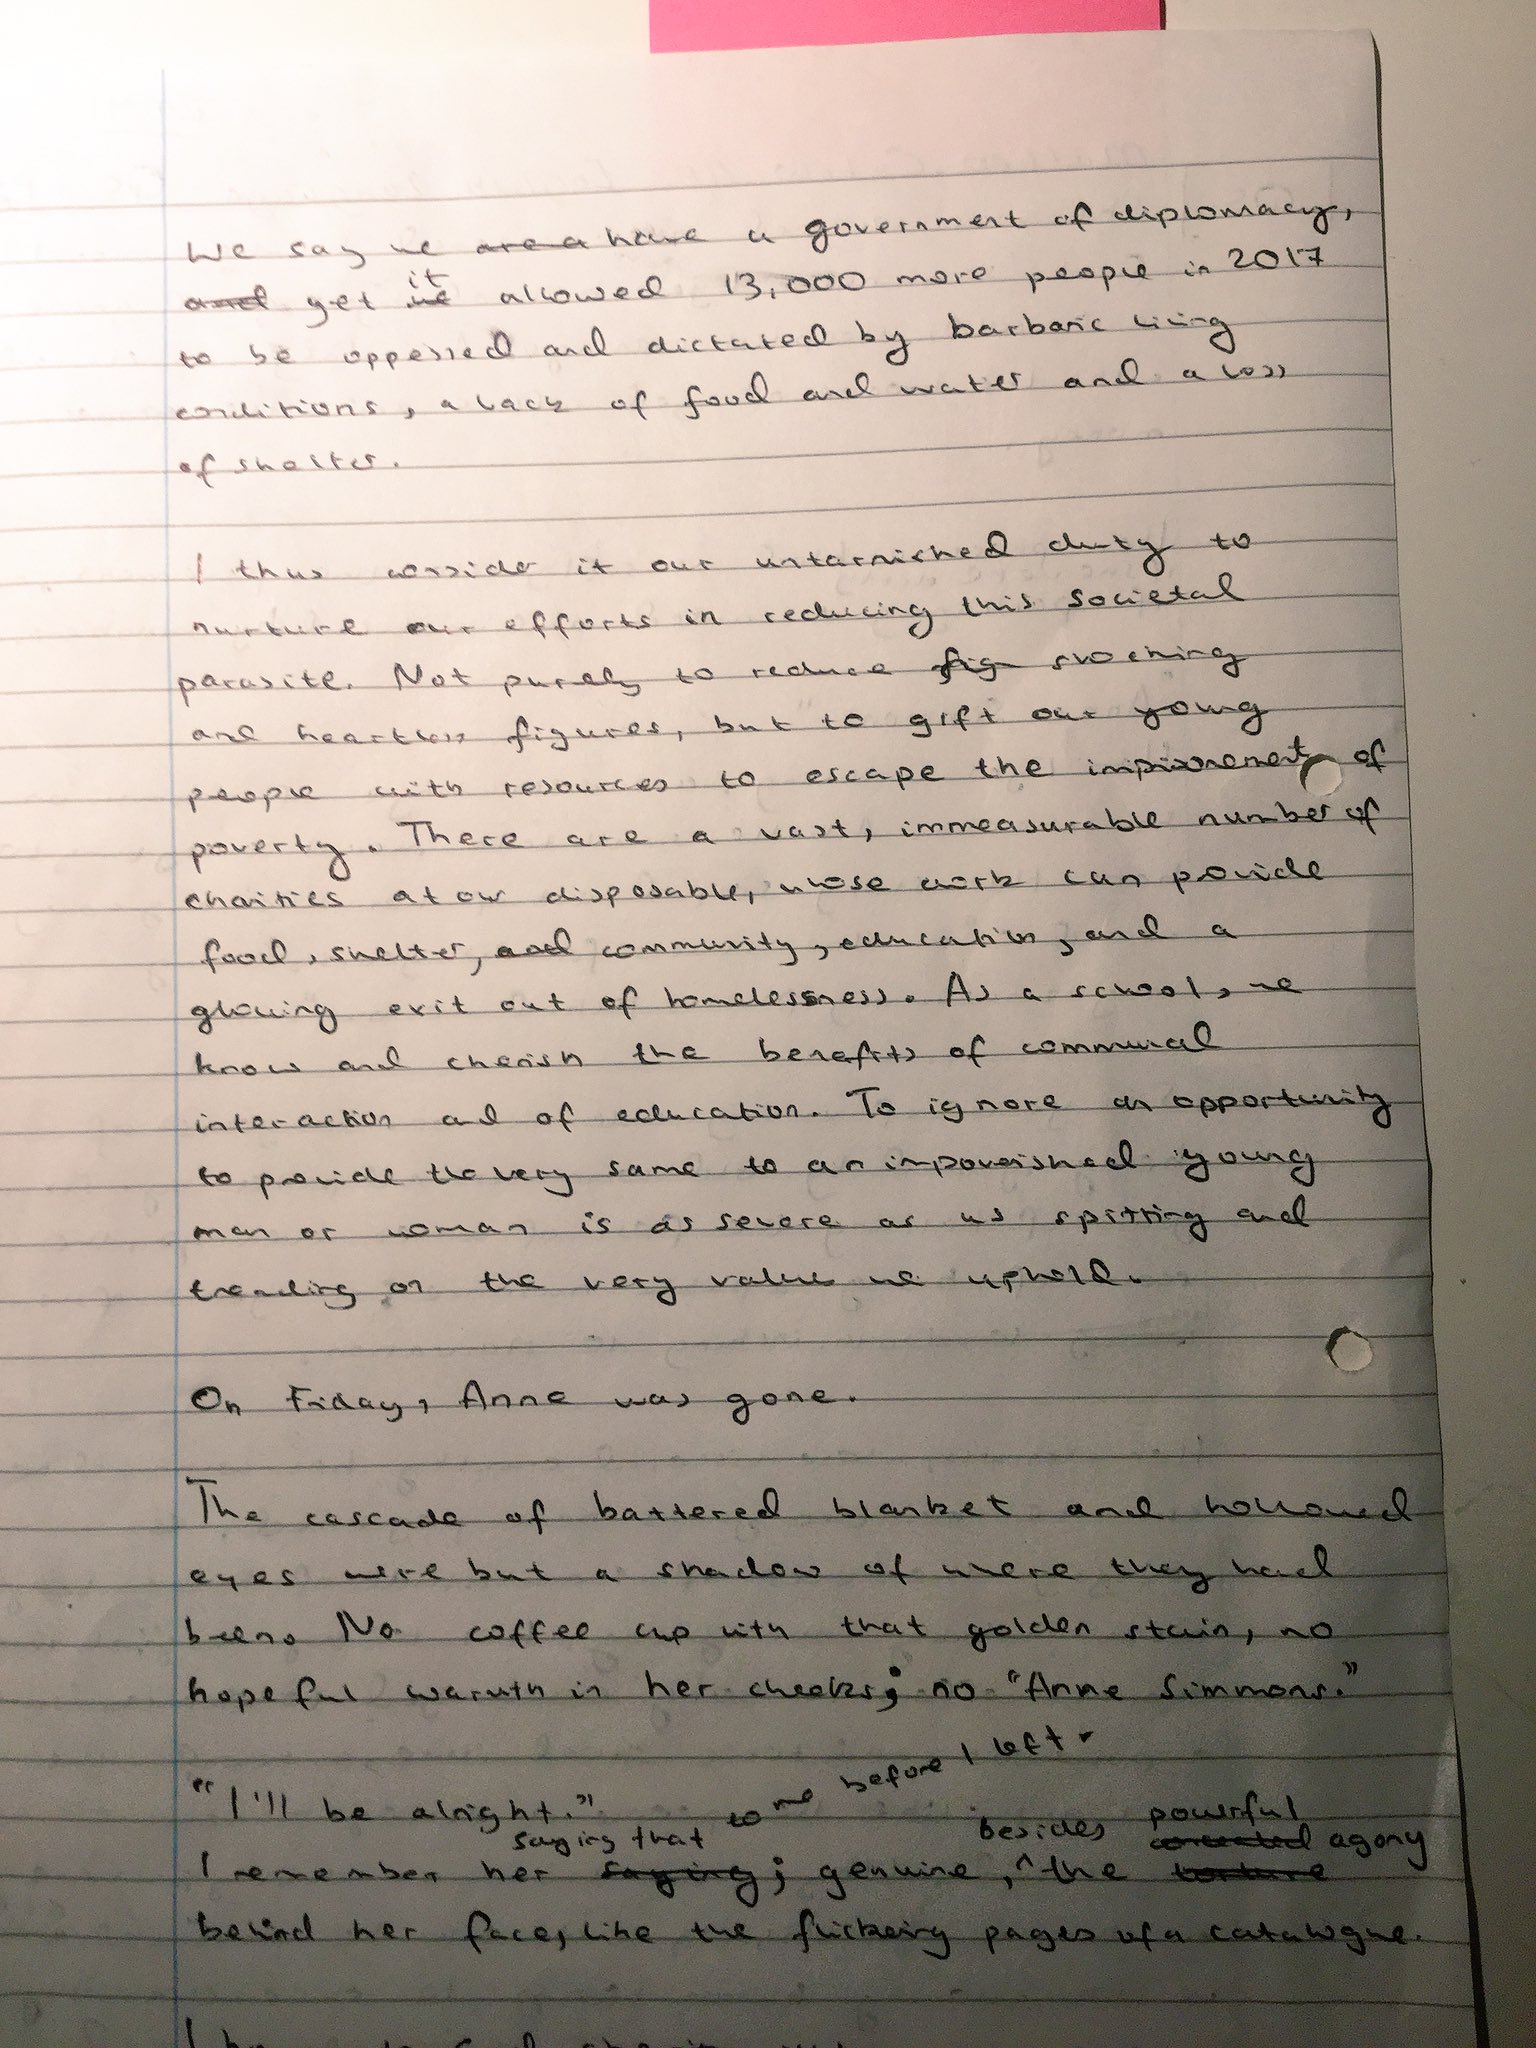 We say we are a have a government of diplomacy,
and yet it we allowed 13,000 more people in 2017
to be oppessed and dictated by barbaric living
conditions, a lack of food and water and a loss
of shelter.
I thus consider it our untarnished duty to
nurture our efforts in reducing this societal
parasite. Not purely to reduce fig shocking
and heartless figures, but to gift our young
people with resources to escape the imprisonement of
poverty. There are a vast, immeasurable number of
charities at our disposable, whose work can provide
food, shelter, and community, education, and a
glowing exit out of homelessness. As a school, we
know and cherish the benefits of communal
interaction and of education. To ignore an opportunity
to provide the very same to an impoverished young
man or woman is as severe as us spitting and
treading on the very values we uphold.
On Friday, Anne was gone.
The cascade of battered blanket and hollowed
eyes were but a shadow of where they had
been. No coffee cup with that golden stain, no
hopeful warmth in her cheeks; no "Anne Simmons."
"I'll be alright."
saying that to me before I left.
besides powerful agony
I remember her saying; genuine, ^ the torture
behind her face, like the flickering pages of a catalogue.